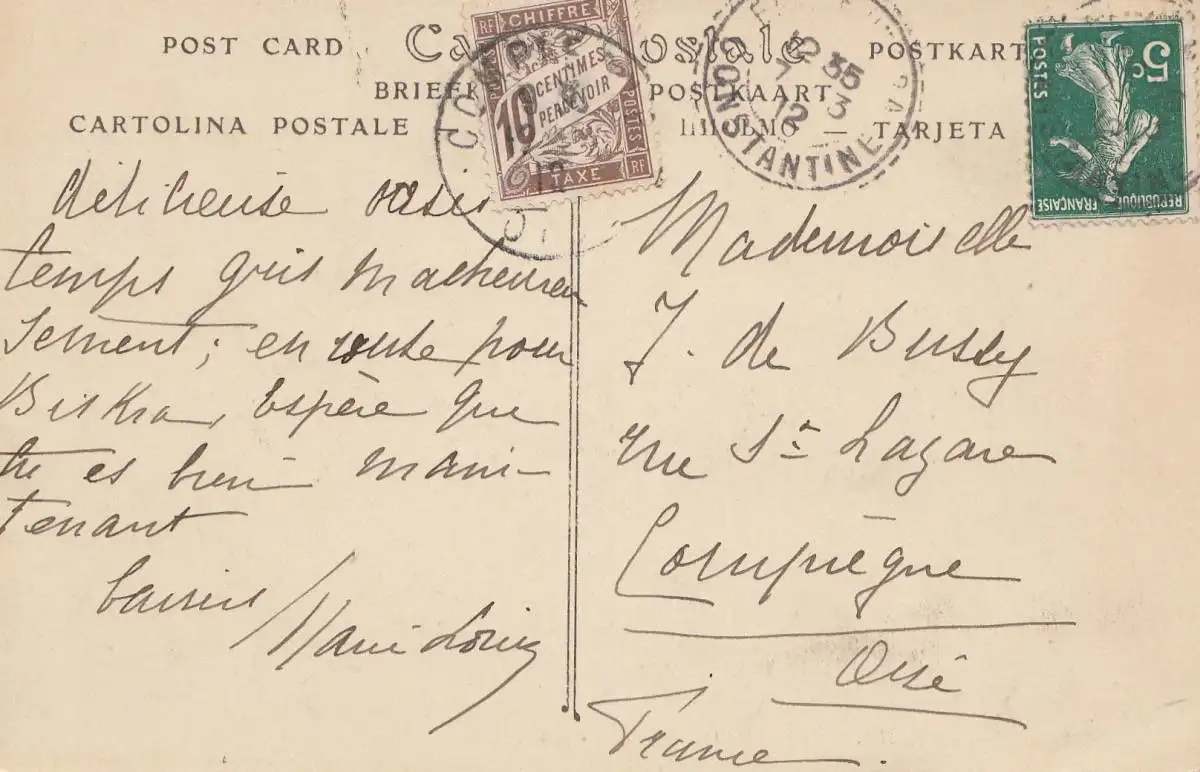 POST CARD Carte Postale POSTKARTE
BRIEFKAART POSTKAART
CARTOLINA POSTALE — TARJETA
CHIFFRE
RF
10
CENTIMES
À PERCEVOIR
POSTES
TAXE
RF
COMPIÈGNE
OISE
12
CONSTANTINE
12 35
7 3
12
5c
POSTES
REPUBLIQUE FRANÇAISE
délicieuse oasis
temps gris malheureu
sement ; en route pour
Biskra, Espère que
tu es bien main-
tenant
baisers
Marie Louise
Mademoiselle
J. de Bussy
rue St Lazare
Compiègne
Oise
France